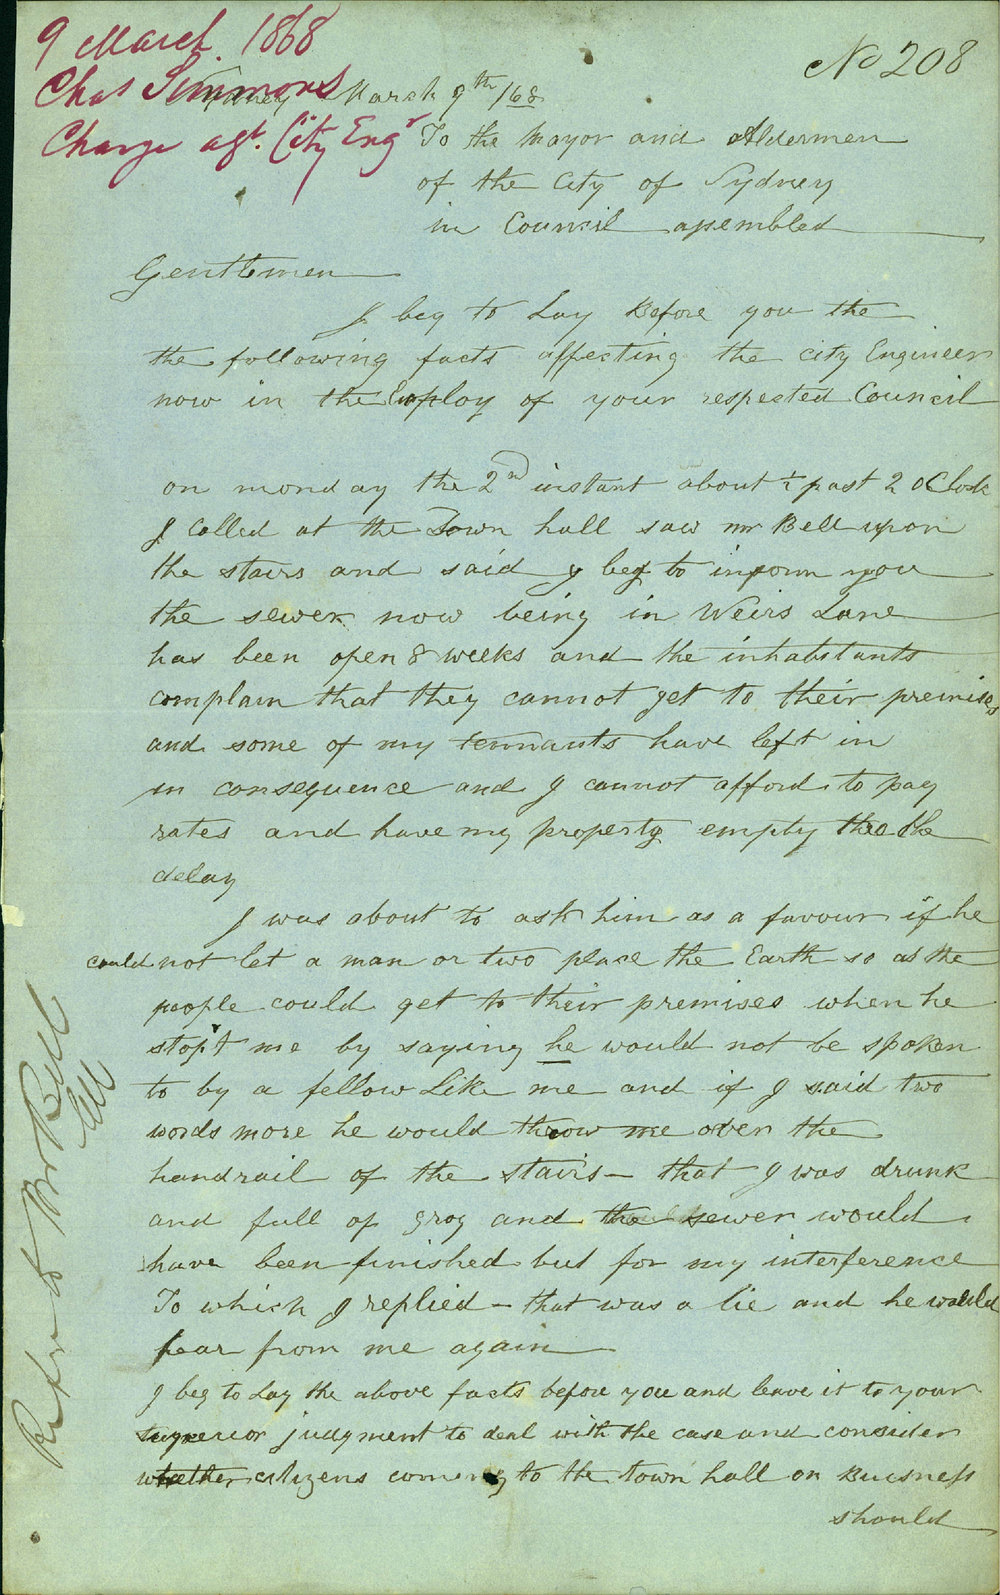 9 March 1868
Chas Simmons
Charge agt. City Engr
No 208
Sydney March 9th /68
To the Mayor and Aldermen
of the City of Sydney
in Council assembled
Gentlemen
I beg to Lay Before you the
the following facts affecting the city Engineer
now in the Employ of your respected Council
on monday the 2nd instant about ½ past 2 oClock
I Called at the Town hall saw mr Bell upon
the stairs and said I beg to inform you
the sewer now being in Weirs Lane
has been open 8 weeks and the inhabitants
complain that they cannot get to their premises
and some of my tennants have left in
in consequence and I cannot afford to pay
rates and have my property empty thro the
delay
I was about to ask him as a favour if he
could not let a man or two place the Earth so as the
people could get to their premises when he
stop't me by saying he would not be spoken
to by a fellow Like me and if I said two
words more he would throw me over the
handrail of the stairs – that I was drunk
and full of grog and the sewer would
have been finished but for my interference
To which I replied – that was a lie and he would
hear from me again
I beg to Lay the above facts before you and leave it to your
superior judgment to deal with the case and consider
whether citizens coming to the town hall on Buisness
should
Refer to Mr Bell